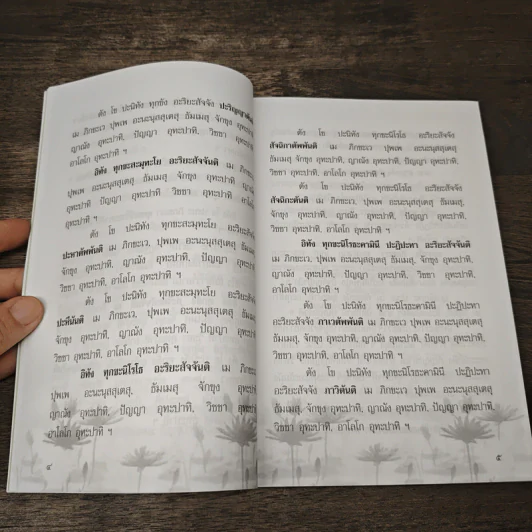 ตัง โข ปะนิทัง ทุกขัง อะริยะสัจจัง
เม ภิกขะเว, ปุพเพ อะนะนุสสุเตสุ ธัมเมสุ, จักขุง อุทะปาทิ,
ญาณัง อุทะปาทิ, ปัญญา อุทะปาทิ, วิชชา อุทะปาทิ,
อาโลโก อุทะปาทิ ฯ
อิทัง ทุกขะสะมุทะโย อะริยะสัจจันติ เม ภิกขะเว,
ปุพเพ อะนะนุสสุเตสุ ธัมเมสุ, จักขุง อุทะปาทิ, ญาณัง
อุทะปาทิ, ปัญญา อุทะปาทิ, วิชชา อุทะปาทิ, อาโลโก
อุทะปาทิ ฯ
ตัง โข ปะนิทัง ทุกขะสะมุทะโย อะริยะสัจจัง
ปะหาตัพพันติ เม ภิกขะเว, ปุพเพ อะนะนุสสุเตสุ ธัมเมสุ,
จักขุง อุทะปาทิ, ญาณัง อุทะปาทิ, ปัญญา อุทะปาทิ,
วิชชา อุทะปาทิ, อาโลโก อุทะปาทิ ฯ
ตัง โข ปะนิทัง ทุกขะสะมุทะโย อะริยะสัจจัง
ปะหีนันติ เม ภิกขะเว, ปุพเพ อะนะนุสสุเตสุ ธัมเมสุ,
จักขุง อุทะปาทิ, ญาณัง อุทะปาทิ, ปัญญา อุทะปาทิ,
วิชชา อุทะปาทิ, อาโลโก อุทะปาทิ ฯ
อิทัง ทุกขะนิโรโธ อะริยะสัจจันติ เม ภิกขะเว,
ปุพเพ อะนะนุสสุเตสุ, ธัมเมสุ, จักขุง อุทะปาทิ,
ญาณัง อุทะปาทิ, ปัญญา อุทะปาทิ, วิชชา อุทะปาทิ,
อาโลโก อุทะปาทิ ฯ
๔
ตัง โข ปะนิทัง ทุกขะนิโรโธ อะริยะสัจจัง
สัจฉิกาตัพพันติ เม ภิกขะเว, ปุพเพ อะนะนุสสุเตสุ ธัมเมสุ,
จักขุง อุทะปาทิ, ญาณัง อุทะปาทิ, ปัญญา อุทะปาทิ,
วิชชา อุทะปาทิ, อาโลโก อุทะปาทิ ฯ
ตัง โข ปะนิทัง ทุกขะนิโรโธ อะริยะสัจจัง
สัจฉิกะตันติ เม ภิกขะเว, ปุพเพ อะนะนุสสุเตสุ ธัมเมสุ,
จักขุง อุทะปาทิ, ญาณัง อุทะปาทิ, ปัญญา อุทะปาทิ,
วิชชา อุทะปาทิ, อาโลโก อุทะปาทิ ฯ
อิทัง ทุกขะนิโรธะคามินี ปะฏิปะทา อะริยะสัจจันติ
เม ภิกขะเว, ปุพเพ อะนะนุสสุเตสุ ธัมเมสุ, จักขุง อุทะปาทิ,
ญาณัง อุทะปาทิ, ปัญญา อุทะปาทิ, วิชชา อุทะปาทิ,
อาโลโก อุทะปาทิ ฯ
ตัง โข ปะนิทัง ทุกขะนิโรธะคามินี ปะฏิปะทา
อะริยะสัจจัง ภาเวตัพพันติ เม ภิกขะเว, ปุพเพ อะนะนุสสุเตสุ
ธัมเมสุ, จักขุง อุทะปาทิ, ญาณัง อุทะปาทิ, ปัญญา อุทะปาทิ,
วิชชา อุทะปาทิ, อาโลโก อุทะปาทิ ฯ
ตัง โข ปะนิทัง ทุกขะนิโรธะคามินี ปะฏิปะทา
อะริยะสัจจัง ภาวิตันติ เม ภิกขะเว, ปุพเพ อะนะนุสสุเตสุ
ธัมเมสุ, จักขุง อุทะปาทิ, ญาณัง อุทะปาทิ, ปัญญา อุทะปาทิ,
วิชชา อุทะปาทิ, อาโลโก อุทะปาทิ ฯ
๕